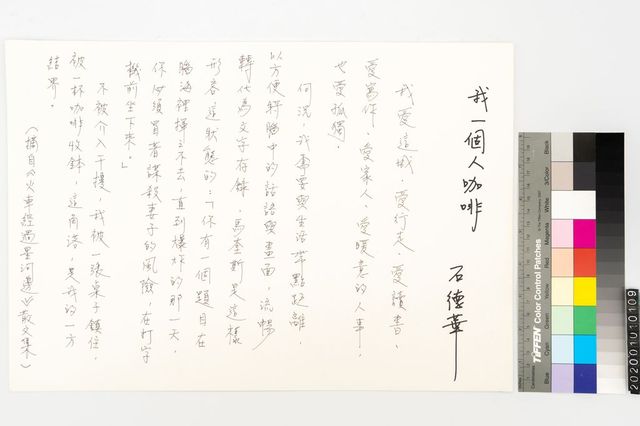 我一個人咖啡
石德華
我愛這城，愛行走，愛讀書，
愛寫作，愛家人，愛暖意的人事，
也愛孤獨。
何況，我需要與生活帶點距離，
以方便將腦中的話語與畫面，流暢
轉化為文字存錄，馬奎斯是這樣
形容這狀態的：「你有一個題目在
腦海裡揮之不去，直到爆炸的那一天，
你必須冒者謀殺妻子的風險，在打字
機前坐下來。」
不被介入干擾，我被一張桌子鎮住，
被一杯咖啡收鉢，這角落，是我的一方
結界。
（摘自《火車經過星河邊》散文集）
Black
3/Color
White
Magenta
Red
Yellow
Green
Cyan
Blue
TIFFEN Color Control Patches
20200101010109